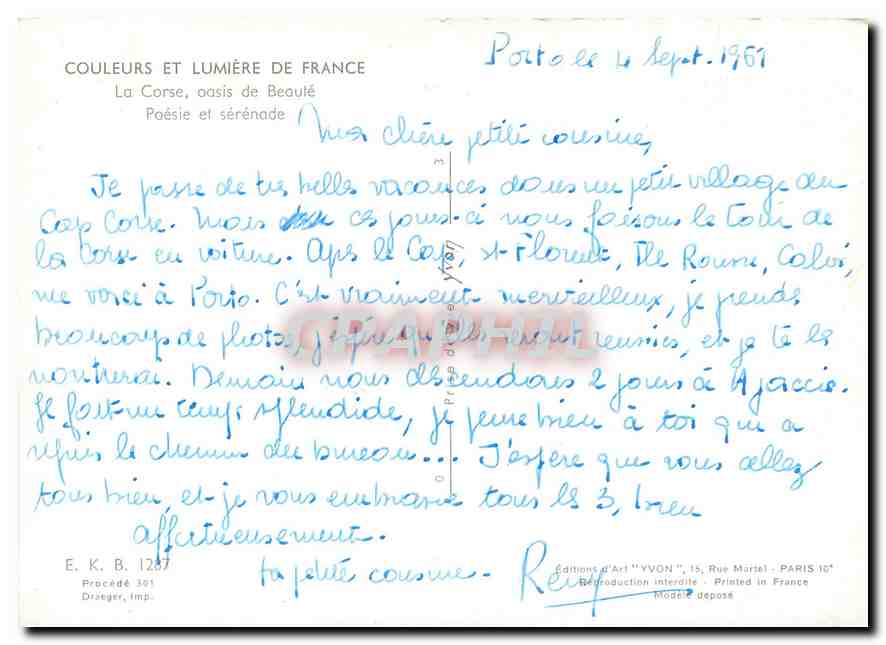 COULEURS ET LUMIÈRE DE FRANCE
La Corse, oasis de Beauté
Poésie et sérénade
Porto le 4 Sept. 1961
Ma chère petite cousine,
Je passe de très belles vacances dans un petit village du
Cap Corse. Mais ces jours-ci nous faisons le tour de
la Corse en voiture. Après le Cap, St Florent, Ile Rousse, Calvi,
me voici à Porto. C'est vraiment merveilleux, je prends
beaucoup de photos, j'espère qu'elles seront réussies, et je te les
montrerai. Demain nous descendons 2 jours à Ajaccio.
Il fait un temps splendide, je pense bien à toi qui a
repris le chemin du bureau... J'espère que vous allez
tous bien, et je vous embrasse tous les 3, bien
affectueusement.
ta petite cousine.
E. K. B. 1287
Procédé 301
Draeger, Imp.
Éditions d'Art "YVON", 15, Rue Martel - PARIS 10e
Reproduction interdite - Printed in France
Modèle déposé
3
Yvon
0
CPAPHIL